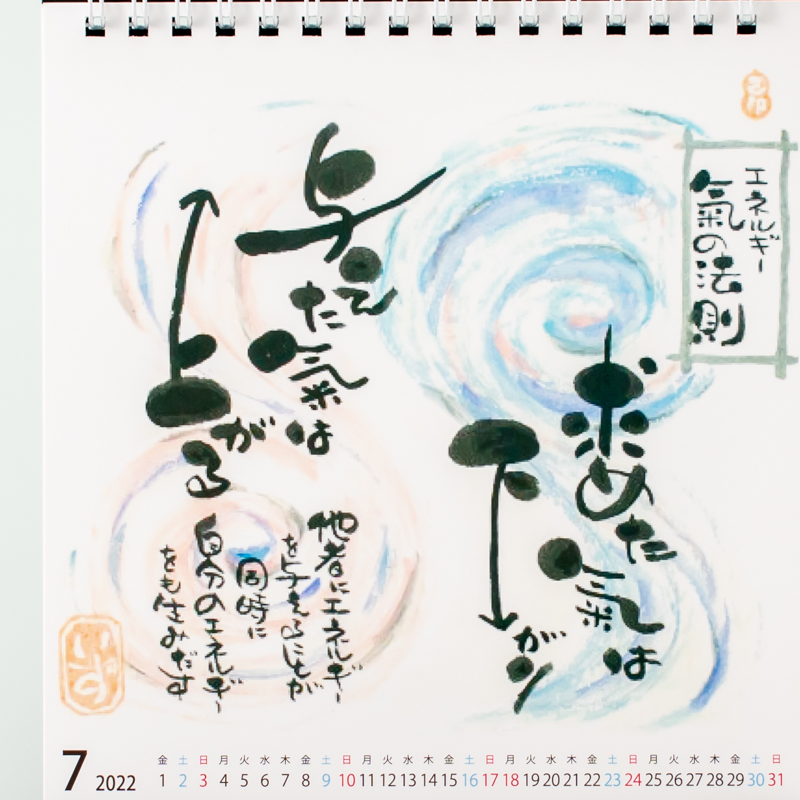 エネルギー
氣の法則
求めた
氣は
下がり
与えた
氣は
上がる
他者にエネルギー
を与えることが
同時に
自分のエネルギー
をも生みだす
7 2022
金 土 日 月 火 水 木 金 土 日 月 火 水 木 金 土 日 月 火 水 木 金 土 日 月 火 水 木 金 土 日
1 2 3 4 5 6 7 8 9 10 11 12 13 14 15 16 17 18 19 20 21 22 23 24 25 26 27 28 29 30 31